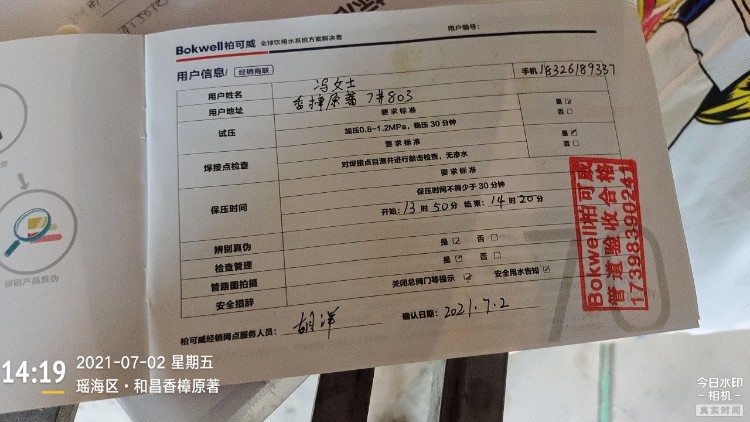 Bokwell柏可威 全球饮用水系统方案解决者
用户编号:
用户信息/ 经销商联
用户姓名 冯女士 手机18326189337
用户地址 香樟原著7#803
要求标准
试压 加压0.8-1.2MPa,稳压 30 分钟 是☑ 否□
要求标准
焊接点检查 对焊接点目测并进行敲击检查,无渗水 是☑ 否□
要求标准
保压时间 保压时间不得少于 30 分钟
开始:13 时 50 分 结束:14 时 20 分
辨别真伪 是☑ 否□
检查管理 是☑ 否□
管路图拍摄 关闭总阀门等提示☑ 安全用水告知☑
安全措辞
柏可威经销网点服务人员: 胡洋 确认日期: 2021.7.2
Bokwell柏可威
管道验收合格
17398390241
70
辨别产品真伪
14:19
2021-07-02 星期五
瑶海区·和昌香樟原著
今日水印
-相机-
真实时间